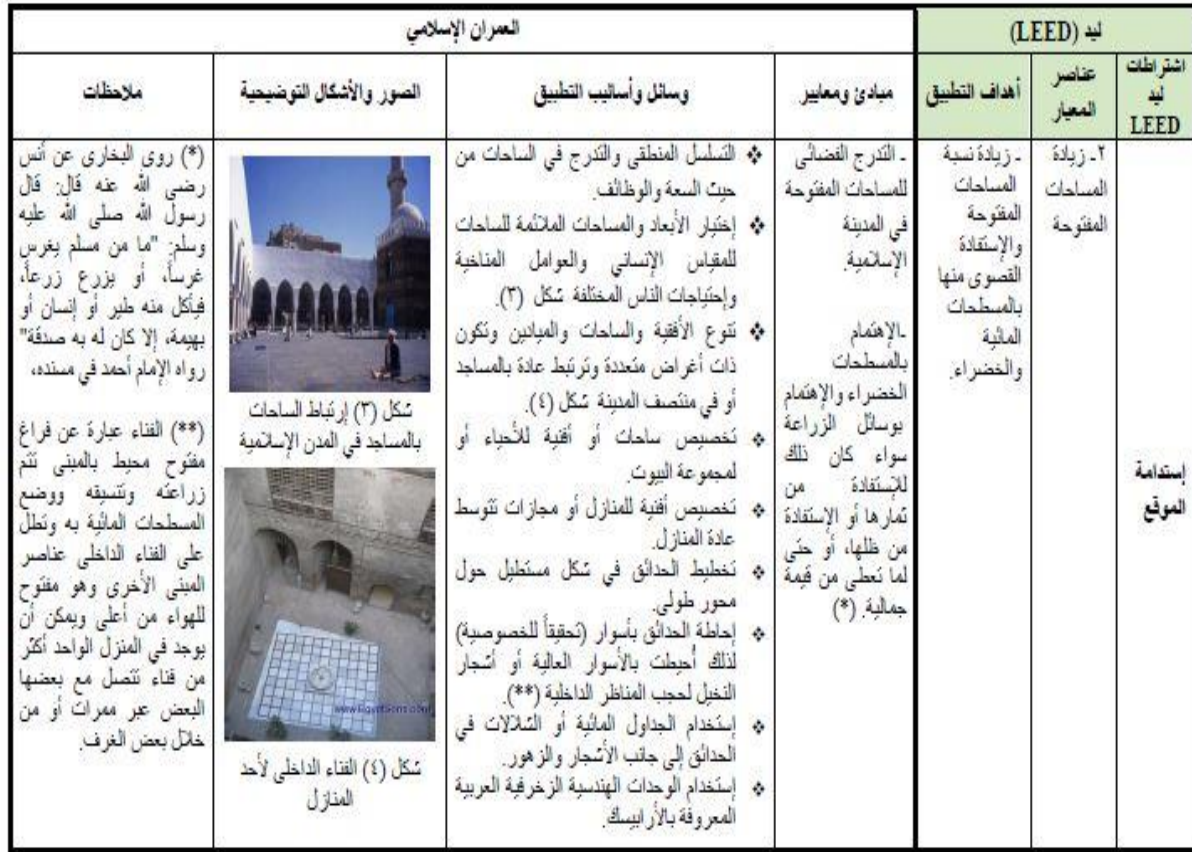 ليد (LEED)
العمران الإسلامي
اشتراطات
ليد
LEED
عناصر
المعيار
أهداف التطبيق
مبادئ ومعايير
وسائل وأساليب التطبيق
الصور والأشكال التوضيحية
ملاحظات
إستدامة
الموقع
٢- زيادة
المساحات
المفتوحة
- زيادة نسبة
المساحات
المفتوحة
والإستفادة
القصوى منها
بالمسطحات
المائية
والخضراء.
- التدرج الفضائى
للمساحات المفتوحة
في المدينة
الإسلامية.
-الإهتمام
بالمسطحات
الخضراء والإهتمام
بوسائل الزراعة
سواء كان ذلك
للإستفادة من
ثمارها أو الإستفادة
من ظلها، أو حتى
لما تعطى من قيمة
جمالية. (*)
❖ التسلسل المنطقى والتدرج في الساحات من
حيث السعة والوظائف.
❖ إختيار الأبعاد والمساحات الملائمة للساحات
للمقياس الإنساني والعوامل المناخية
وإحتياجات الناس المختلفة شكل (٣).
❖ تنوع الأفنية والساحات والميادين وتكون
ذات أغراض متعددة وترتبط عادة بالمساجد
أو في منتصف المدينة شكل (٤).
❖ تخصيص ساحات أو أفنية للأحياء أو
لمجموعة البيوت.
❖ تخصيص أفنية للمنازل أو مجازات تتوسط
عادة المنازل.
❖ تخطيط الحدائق في شكل مستطيل حول
محور طولى.
❖ إحاطة الحدائق بأسوار (تحقيقاً للخصوصية)
لذلك أحيطت بالأسوار العالية أو أشجار
النخيل لحجب المناظر الداخلية (**).
❖ إستخدام الجداول المائية أو الشلالات في
الحدائق إلى جانب الأشجار والزهور.
❖ إستخدام الوحدات الهندسية الزخرفية العربية
المعروفة بالأرابيسك.
شكل (٣) إرتباط الساحات
بالمساجد في المدن الإسلامية
www.EgyptSons.com
شكل (٤) الفناء الداخلى لأحد
المنازل
(*) روى البخارى عن أنس
رضى الله عنه قال: قال
رسول الله صلى الله عليه
وسلم: "ما من مسلم يغرس
غرساً، أو يزرع زرعاً،
فيأكل منه طير أو إنسان أو
بهيمة، إلا كان له به صدقة"
رواه الإمام أحمد في مسنده،
(**) الفناء عبارة عن فراغ
مفتوح محيط بالمبنى تتم
زراعته وتنسيقه ووضع
المسطحات المائية به وتطل
على الفناء الداخلى عناصر
المبنى الأخرى وهو مفتوح
للهواء من أعلى ويمكن أن
يوجد في المنزل الواحد أكثر
من فناء تتصل مع بعضها
البعض عبر ممرات أو من
خلال بعض الغرف.